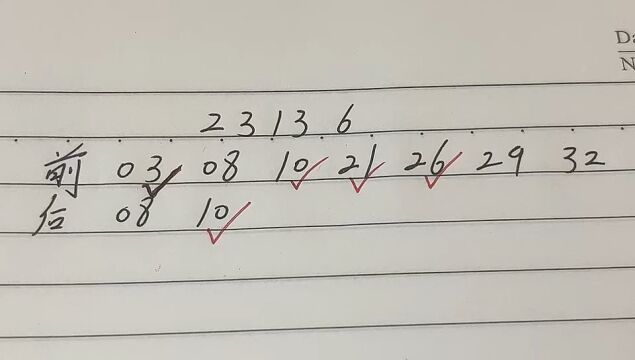 Da
N
23136
前 03 08 10 21 26 29 32
后 08 10